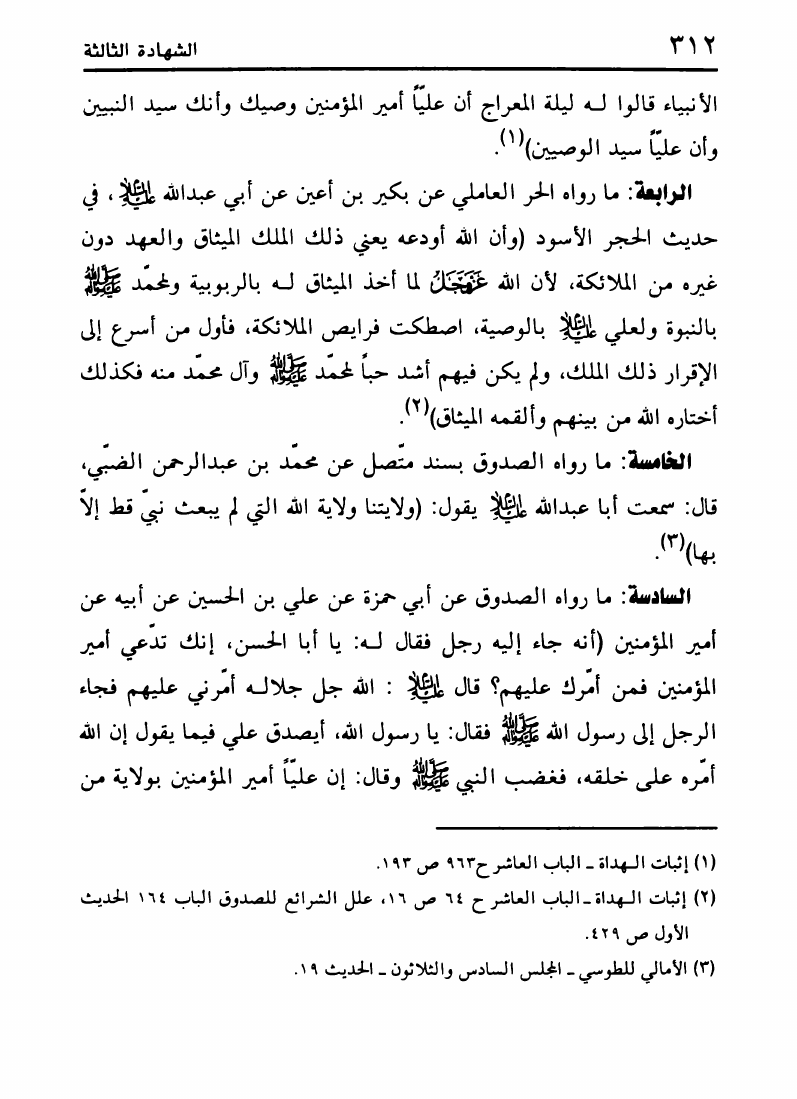 ٣١٢ الشهادة الثالثة
الأنبياء قالوا له ليلة المعراج أن عليّاً أمير المؤمنين وصيك وأنك سيد النبيين
وأن عليّاً سيد الوصيين)(١).
الرابعة: ما رواه الحر العاملي عن بكير بن أعين عن أبي عبدالله عليه السلام، في
حديث الحجر الأسود (وأن الله أودعه يعني ذلك الملك الميثاق والعهد دون
غيره من الملائكة، لأن الله عز وجل لما أخذ الميثاق له بالربوبية ولمحمّد ﷺ
بالنبوة ولعلي عليه السلام بالوصية، اصطكت فرايص الملائكة، فأول من أسرع إلى
الإقرار ذلك الملك، ولم يكن فيهم أشد حباً لمحمّد ﷺ وآل محمّد منه فكذلك
أختاره الله من بينهم وألقمه الميثاق)(٢).
الخامسة: ما رواه الصدوق بسند متّصل عن محمّد بن عبدالرحمن الضبّي،
قال: سمعت أبا عبدالله عليه السلام يقول: (ولايتنا ولاية الله التي لم يبعث نبيّ قط إلاّ
بها)(٣).
السادسة: ما رواه الصدوق عن أبي حمزة عن علي بن الحسين عن أبيه عن
أمير المؤمنين (أنه جاء إليه رجل فقال له: يا أبا الحسن، إنك تدّعي أمير
المؤمنين فمن أمّرك عليهم؟ قال عليه السلام : الله جل جلاله أمّرني عليهم فجاء
الرجل إلى رسول الله ﷺ فقال: يا رسول الله، أيصدق علي فيما يقول إن الله
أمّره على خلقه، فغضب النبي ﷺ وقال: إن عليّاً أمير المؤمنين بولاية من
(١) إثبات الهداة ـ الباب العاشر ح٩٦٣ ص ١٩٣.
(٢) إثبات الهداة ـ الباب العاشر ح ٦٤ ص ١٦، علل الشرائع للصدوق الباب ١٦٤ الحديث
الأول ص ٤٢٩.
(٣) الأمالي للطوسي ـ المجلس السادس والثلاثون ـ الحديث ١٩.